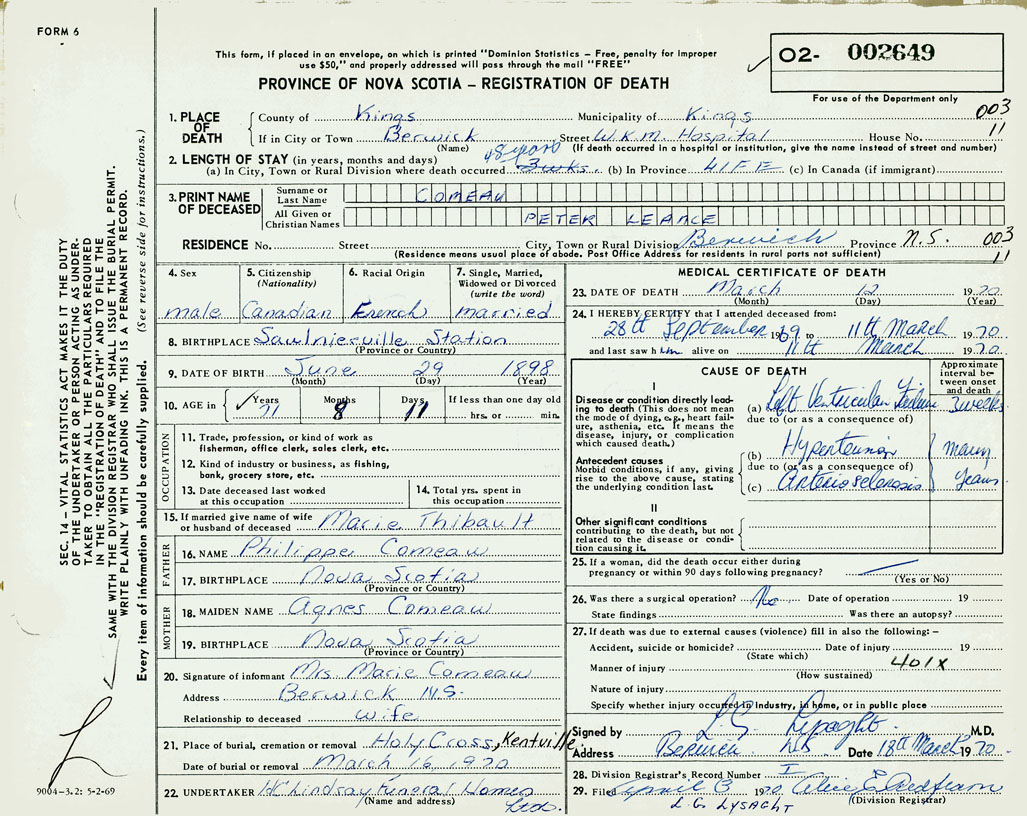 FORM 6
This form, if placed in an envelope, on which is printed "Dominion Statistics – Free, penalty for improper
use $50," and properly addressed will pass through the mail "FREE"
PROVINCE OF NOVA SCOTIA – REGISTRATION OF DEATH
02- 002649
For use of the Department only
003
11
1. PLACE OF DEATH
County of Kings Municipality of Kings
If in City or Town Berwick Street W.K.M. Hospital House No.
(Name) (If death occurred in a hospital or institution, give the name instead of street and number)
2. LENGTH OF STAY (in years, months and days)
48 years
(a) In City, Town or Rural Division where death occurred 3 wks. (b) In Province LIFE (c) In Canada (if immigrant)
3. PRINT NAME OF DECEASED
Surname or Last Name COMEAU
All Given or Christian Names PETER LEANCE
RESIDENCE No. Street City, Town or Rural Division Berwick Province N.S. 003
11
(Residence means usual place of abode. Post Office Address for residents in rural parts not sufficient)
4. Sex
male
5. Citizenship
(Nationality)
Canadian
6. Racial Origin
French
7. Single, Married,
Widowed or Divorced
(write the word)
married
8. BIRTHPLACE Saulnierville Station
(Province or Country)
9. DATE OF BIRTH June 29 1898
(Month) (Day) (Year)
10. AGE in Years 71 Months 8 Days 11 If less than one day old
hrs. or min.
OCCUPATION
11. Trade, profession, or kind of work as
fisherman, office clerk, sales clerk, etc.
12. Kind of industry or business, as fishing,
bank, grocery store, etc.
13. Date deceased last worked
at this occupation
14. Total yrs. spent in
this occupation
15. If married give name of wife
or husband of deceased Marie Thibault
FATHER
16. NAME Philippe Comeau
17. BIRTHPLACE Nova Scotia
(Province or Country)
MOTHER
18. MAIDEN NAME Agnes Comeau
19. BIRTHPLACE Nova Scotia
(Province or Country)
20. Signature of informant Mrs. Marie Comeau
Address Berwick N.S.
Relationship to deceased wife
21. Place of burial, cremation or removal Holy Cross, Kentville
Date of burial or removal March 16, 1970
22. UNDERTAKER Lindsay Funeral Homes
(Name and address) Ltd.
MEDICAL CERTIFICATE OF DEATH
23. DATE OF DEATH March 12 1970
(Month) (Day) (Year)
24. I HEREBY CERTIFY that I attended deceased from:
28th September 1969 to 11th March 1970
and last saw him alive on 11th March 1970
CAUSE OF DEATH
Approximate
interval be-
tween onset
and death
I
Disease or condition directly lead-
ing to death (This does not mean
the mode of dying, e.g., heart fail-
ure, asthenia, etc. It means the
disease, injury, or complication
which caused death.)
(a) Left Ventricular Failure 3 weeks
due to (or as a consequence of)
Antecedent causes
Morbid conditions, if any, giving
rise to the above cause, stating
the underlying condition last.
(b) Hypertension many
due to (or as a consequence of)
(c) Arteriosclerosis years
II
Other significant conditions
contributing to the death, but not
related to the disease or condi-
tion causing it.
25. If a woman, did the death occur either during
pregnancy or within 90 days following pregnancy?
(Yes or No)
26. Was there a surgical operation? No Date of operation 19
State findings Was there an autopsy?
27. If death was due to external causes (violence) fill in also the following: –
Accident, suicide or homicide? Date of injury 19
(State which)
401X
Manner of injury
(How sustained)
Nature of injury
Specify whether injury occurred in industry, in home, or in public place
Signed by L. G. Lysaght M.D.
Address Berwick NS Date 18th March 1970
28. Division Registrar's Record Number I
29. Filed April 3 1970
(Division Registrar)
L. G. LYSAGHT
SEC. 14 – VITAL STATISTICS ACT MAKES IT THE DUTY
OF THE UNDERTAKER OR PERSON ACTING AS UNDER-
TAKER TO OBTAIN ALL THE PARTICULARS REQUIRED
IN THE "REGISTRATION OF DEATH" AND TO FILE THE
SAME WITH THE DIVISION REGISTRAR WHO SHALL ISSUE THE BURIAL PERMIT.
WRITE PLAINLY WITH UNFADING INK. THIS IS A PERMANENT RECORD.
Every item of information should be carefully supplied. (See reverse side for instructions.)
9004-3.2: 5-2-69